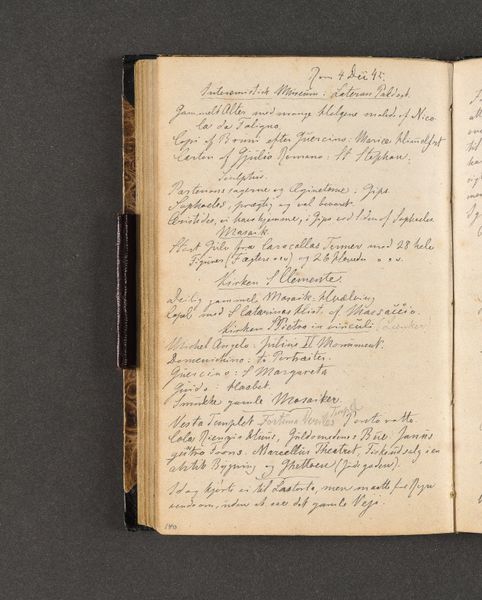 Rom 4 Dec 45.
Museum: Lateran Palads.
Gammelt Alter med mange Helgene malet af Nico-
la da Foligno.
Copi af Bruni efter Guercino: Marias Himmelfart
Carton af Giulio Romano: St Stephan:
Sculptur.
og Æginetome: Gips.
Sophocles, prægtig og vel bevart.
Aristides, vi have hjemme, i Gips ved Siden af Sophocles
Mosaik.
Stort Gulv fra Caracallas Termer med 28 hele
Figurer (Fægtere o.s.v) og 26 Hoveder o. s. v.
Kirken S Clemente.
Deilig gammel Mosaik-Hvælving
Capel med S Catarinas Hist. af Massaccio.
Kirken S Pietro in vinculi
Michel Angelo: Julius II Monument.
Domenichino: to Portraiter.
Guercino: S Margareta
Guido: Haabet.
Smukke gamle Mosaiker.
Vesta Templet Fortuna Virilis Tempel Ponte rotto.
Cola Rienzis Huus, Guldsmedenes Bue. Janus
Marcellus Theatret, Fiskeudsalg i en
antik Bygning og Ghettoen (Jødegaden).
Idag kjørte vi til Lastorta, men maatte for Regn
vende om, uden at see det gamle Veji.
140